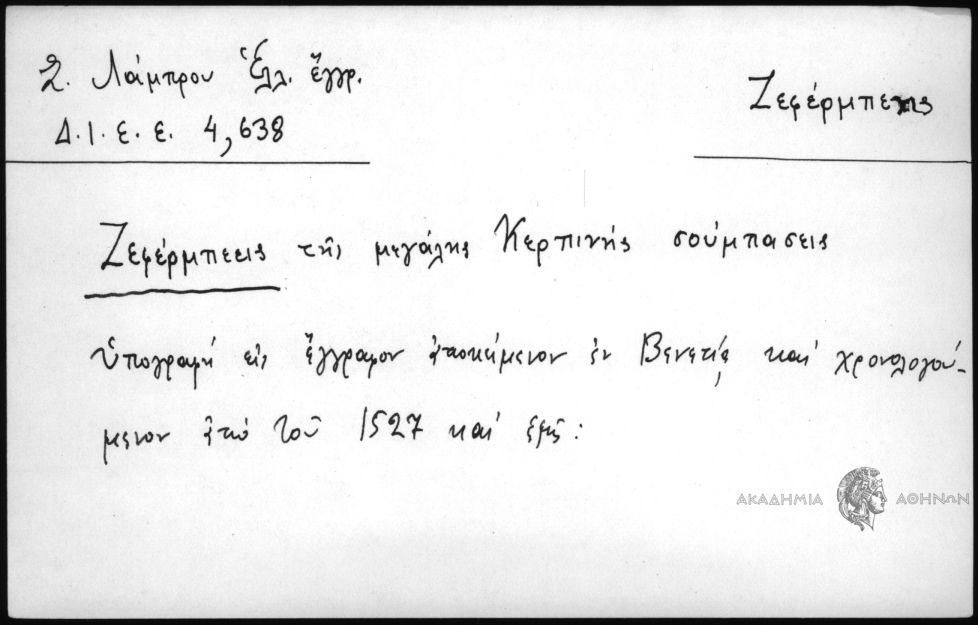 Σ. Λάμπρου Ἑλλ. ἔγγρ.
Δ. Ι. Ε. Ε. 4,638
Ζεφέρμπεης
Ζεφέρμπεεις τῆς μεγάλης Κερπινῆς σούμπασεις
Ὑπογραφή εἰς ἔγγραφον ἀποκείμενον ἐν Βενετίᾳ καί χρονολογού-
μενον ἀπό τοῦ 1527 καί ἑξῆς:
ΑΚΑΔΗΜΙΑ ΑΘΗΝΩΝ